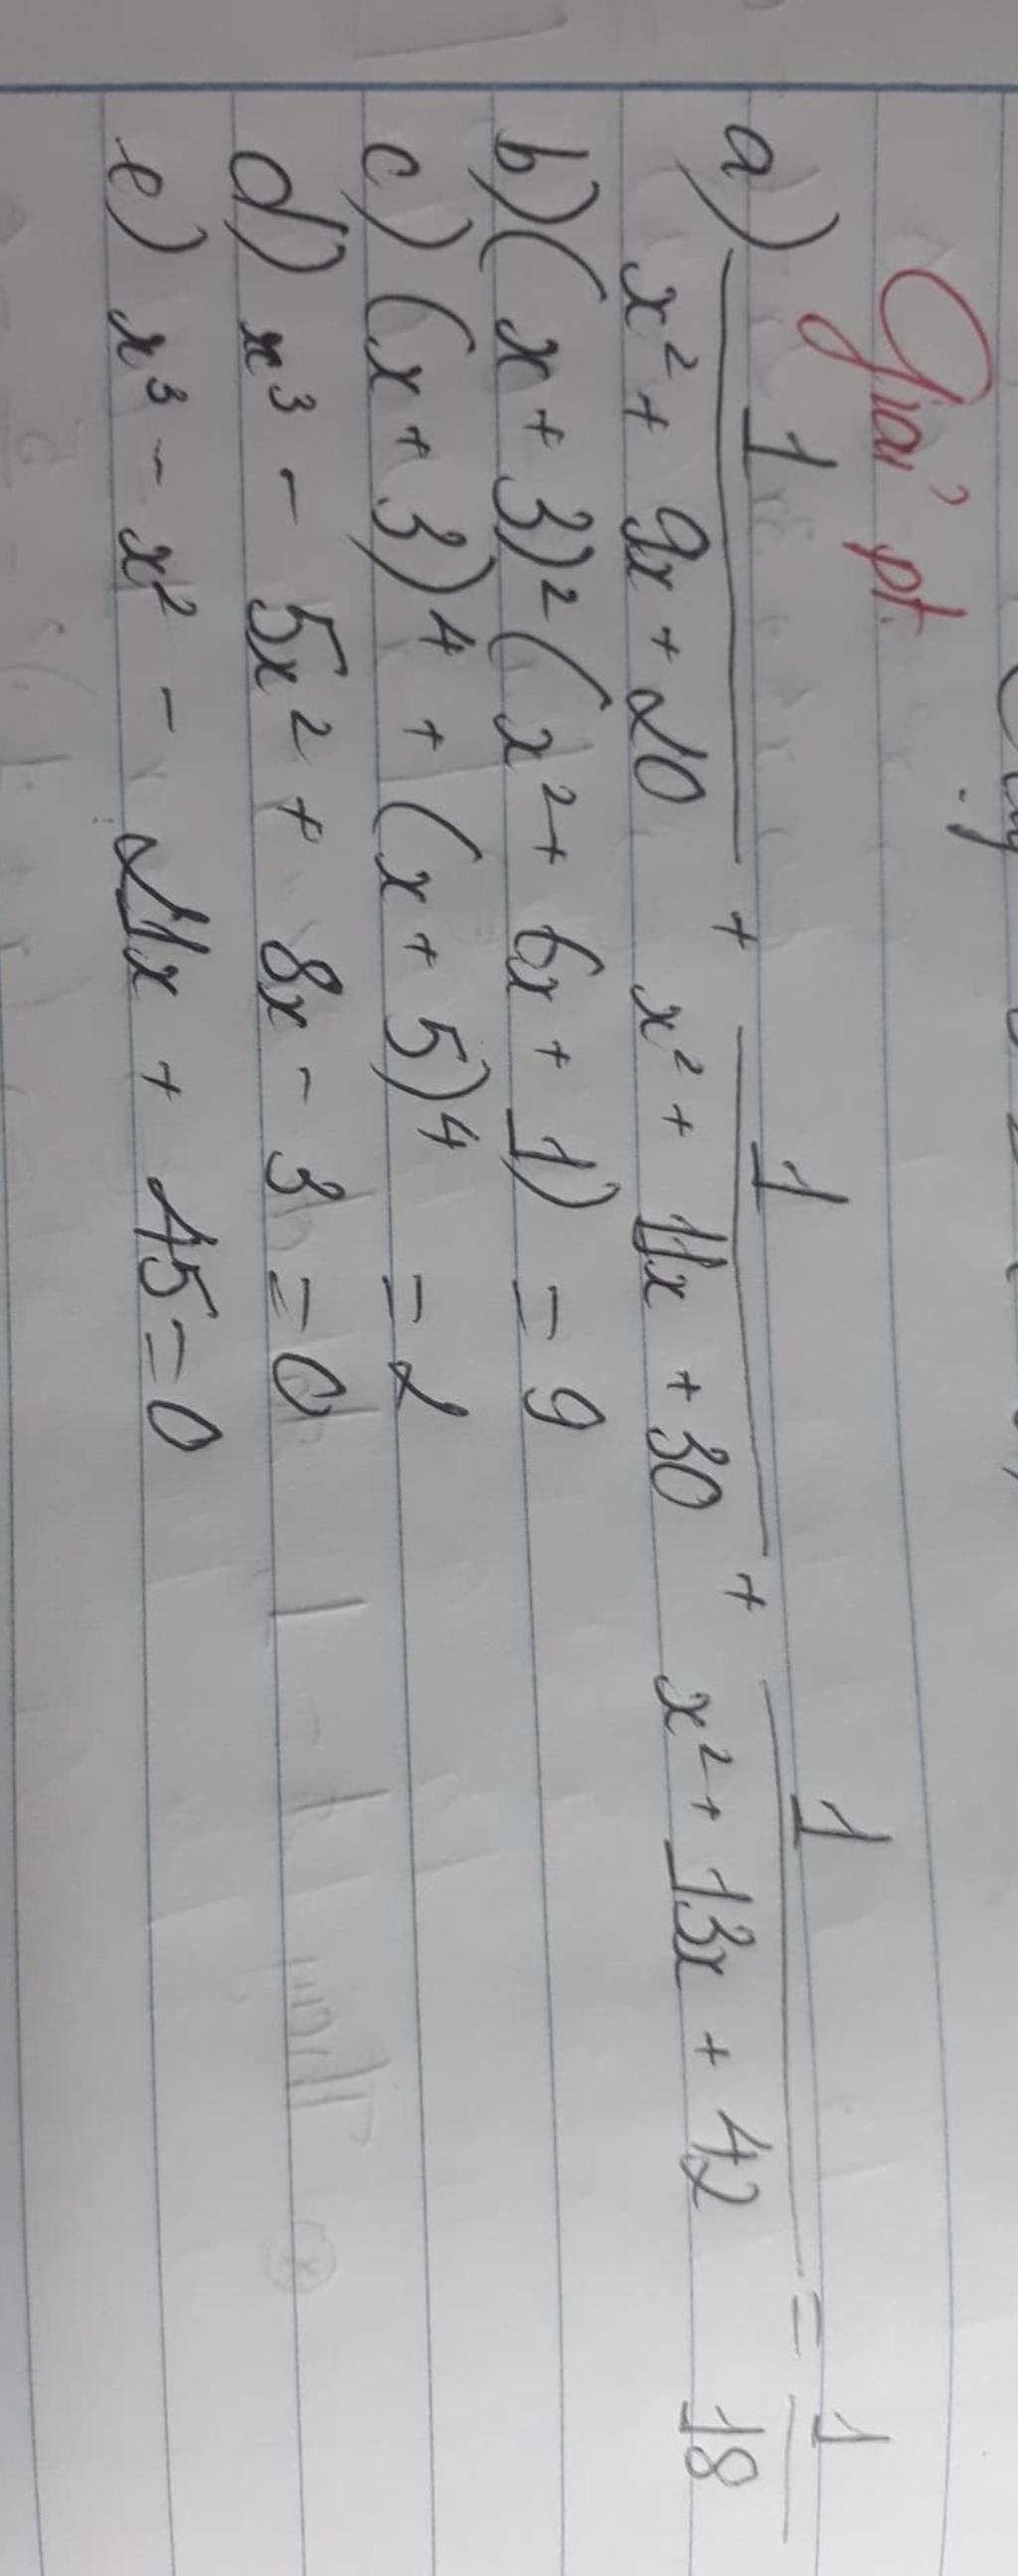 Giải pt.
a) 1/(x² + 9x + 20) + 1/(x² + 11x + 30) + 1/(x² + 13x + 42) = 1/18
b) (x + 3)² (x² + 6x + 1) = 9
c) (x + 3)⁴ + (x + 5)⁴ = 2
d) x³ - 5x² + 8x - 3 = 0
e) x³ - x² - 21x + 45 = 0